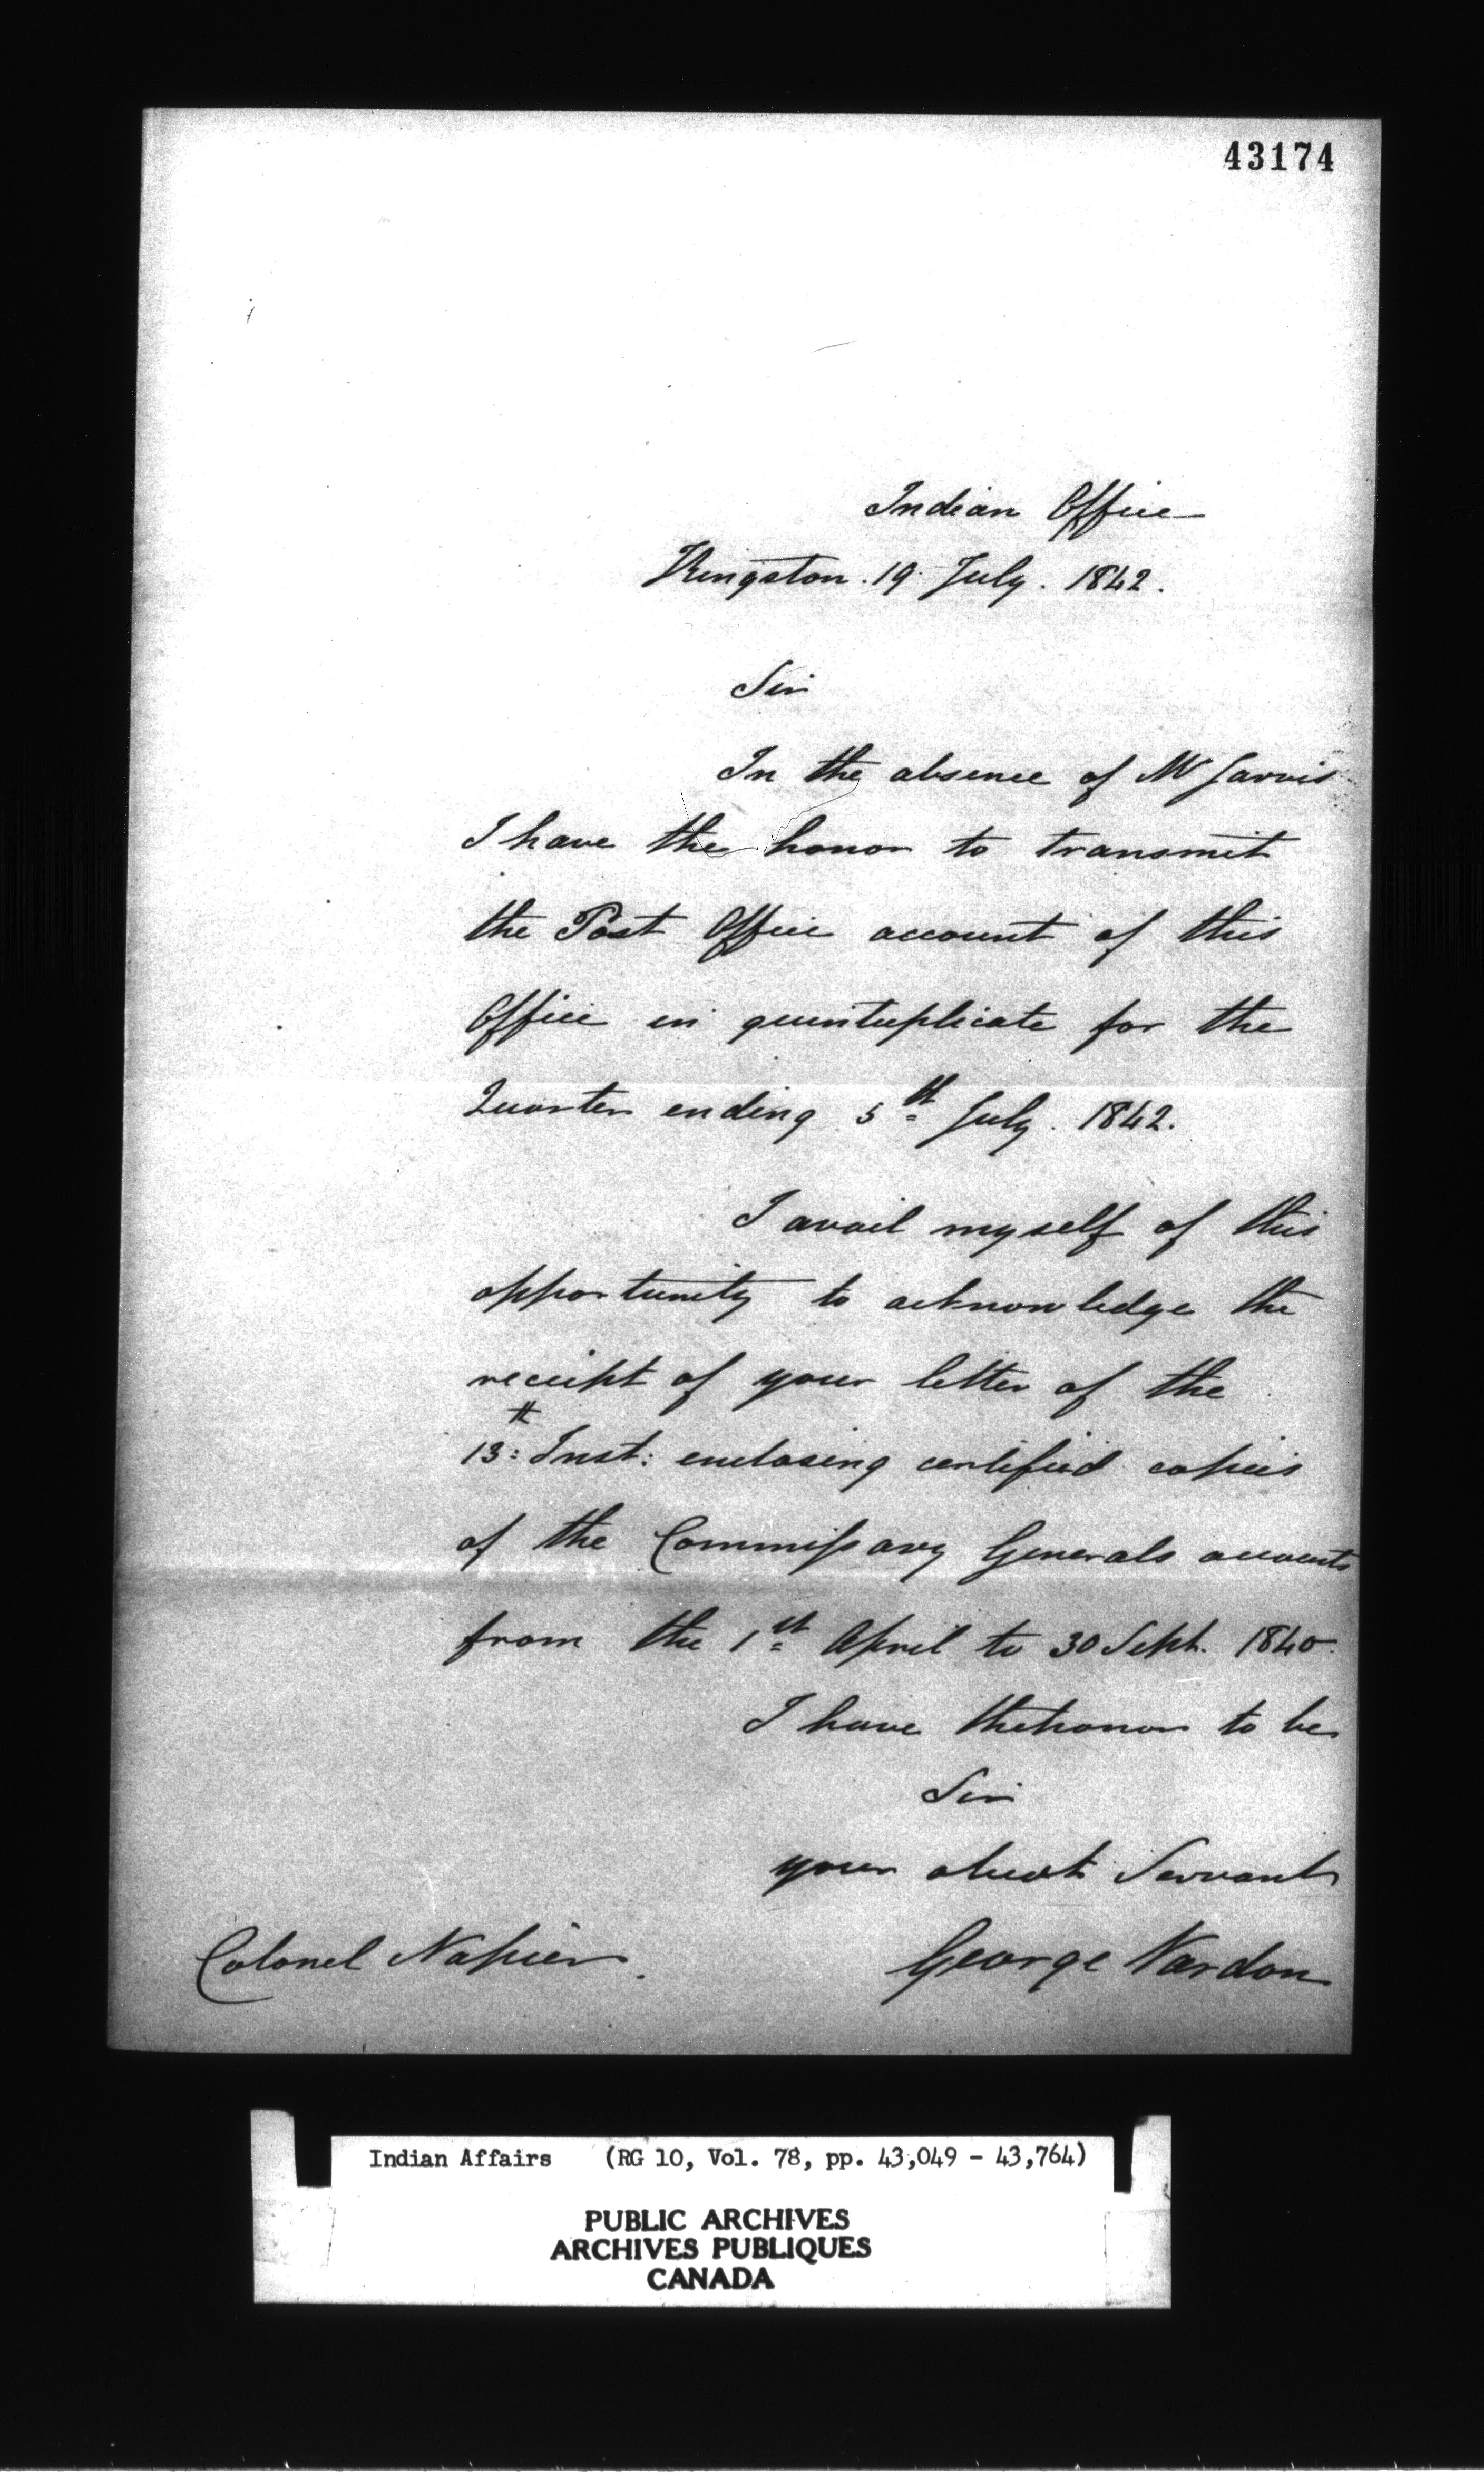 43174
Indian Office
Kingston . 19 July . 1842 .
Sir
In the absence of Mr Jarvis
I have the honor to transmit
the Post Office account of this
Office in quintuplicate for the
Quarter ending 5th July . 1842 .
I avail myself of this
opportunity to acknowledge the
receipt of your letter of the
13th Inst: enclosing certified copies
of the Commissary Generals accounts
from the 1st April to 30 Sept. 1840 .
I have the honor to be
Sir
your obedt Servant
Colonel Napier . George Vardon
Indian Affairs (RG 10, Vol. 78, pp. 43,049 - 43,764)
PUBLIC ARCHIVES
ARCHIVES PUBLIQUES
CANADA